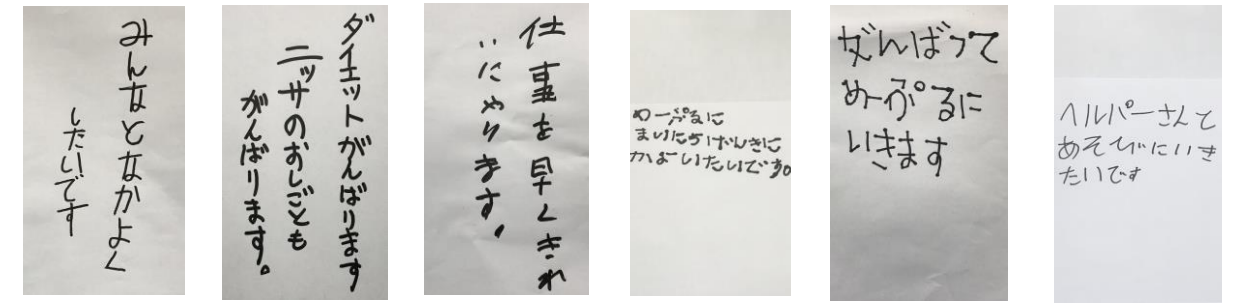 みんなとなかよく
したいです
ダイエットがんばります
ニッサのおしごとも
がんばります。
仕事を早くきれ
いにやります。
めーぷるに
まいにちげんきに
かよいたいです。
がんばって
めーぷるに
いきます
ヘルパーさんと
あそびにいき
たいです